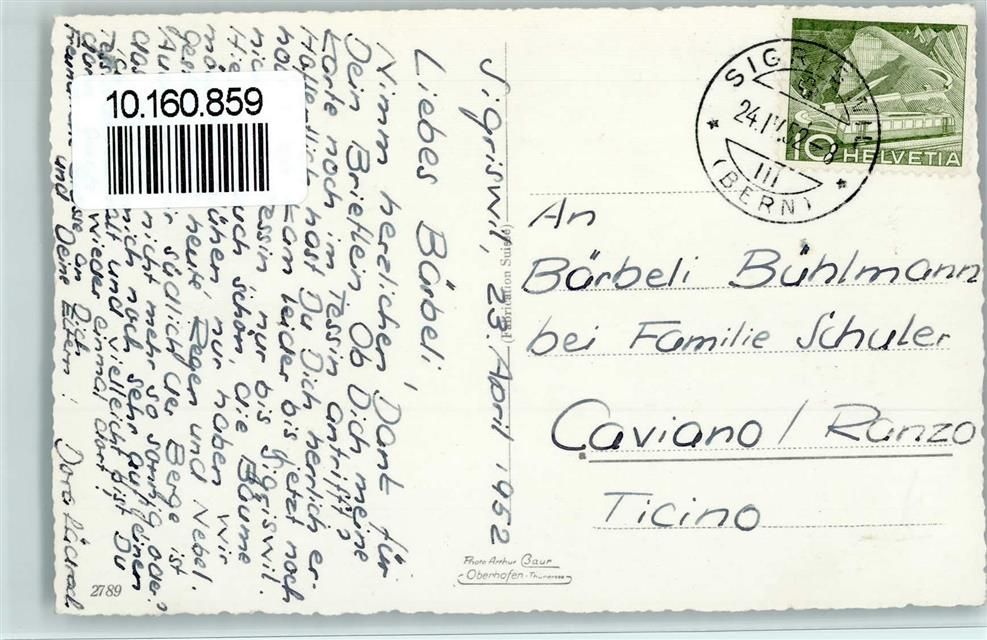 Sigriswil, 23. April 1952
Liebes Bärbeli,
Nimm herzlichen Dank für
Dein Brieflein. Ob Dich meine
Karte noch im Tessin antrifft?
Hoffentlich hast Du Dich herrlich er-
hol
kam leider bis jetzt noch
nic
essin, nur bis Sigriswil.
Hie
uch schön, die Bäume
ühen nur haben wir
heute, Regen und Nebel.
Au
südlich der Berge ist
nicht mehr so sonnig oder?
mich noch sehr auf einen
alt und vielleicht bist Du
wieder einmal dort!
an Dich
und Deine Eltern:
Dora
2789
(Fabrication Suisse)
Photo Arthur Baur
Oberhofen-Thunersee
10.160.859
SIGRISWIL
24.IV.52-8
III
(BERN)
10 HELVETIA
An
Bärbeli Bühlmann
bei Familie Schuler
Caviano / Ranzo
Ticino